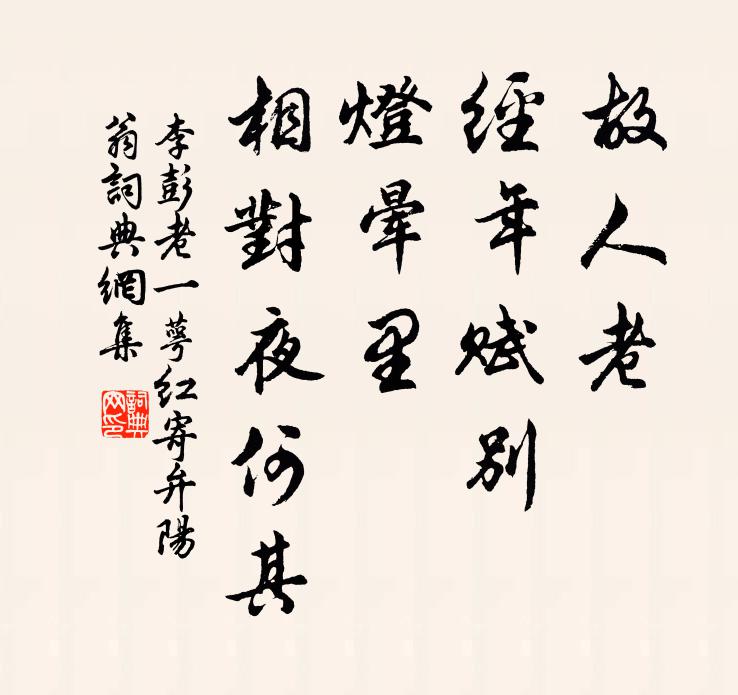 故人老
經年賦別
燈暈里
相對夜何其
李彭老一萼紅寄弁陽
翁詞典網集
詞典
网印